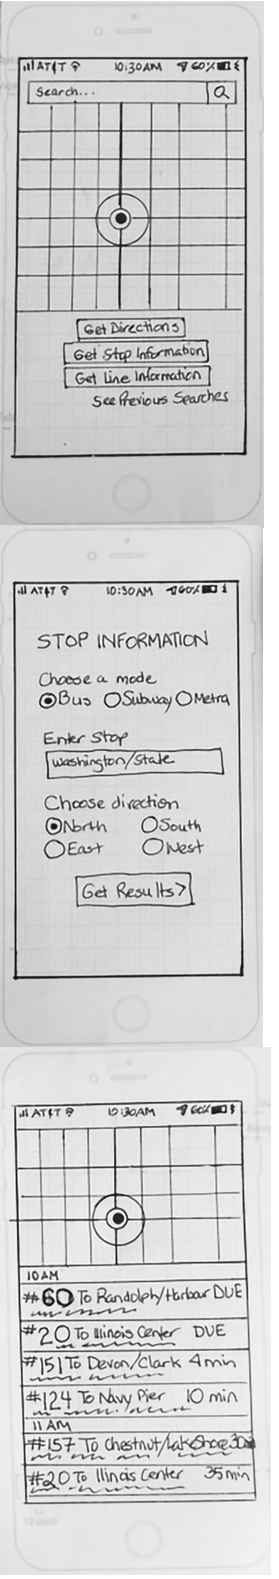 AT&T 10:30AM 60%
Search...
Get Directions
Get Stop Information
Get Line Information
See Previous Searches
AT&T 10:30AM 60%
STOP INFORMATION
Choose a mode
Bus Subway Metra
Enter Stop
Washington/State
Choose direction
North South
East West
Get Results>
AT&T 10:30AM 60%
10AM
#60 To Randolph/Harbour DUE
#20 To Illinois Center DUE
#151 To Devon/Clark 4 min
#124 To Navy Pier 10 min
11 AM
#157 To Chestnut/LakeShore
#20 To Illinois Center 35 min